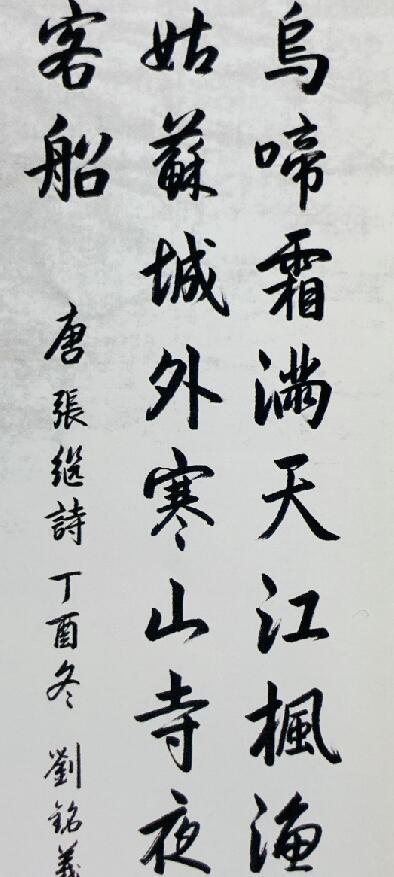 烏啼霜滿天江楓漁
姑蘇城外寒山寺夜
客船
唐張継詩丁酉冬 劉銘義